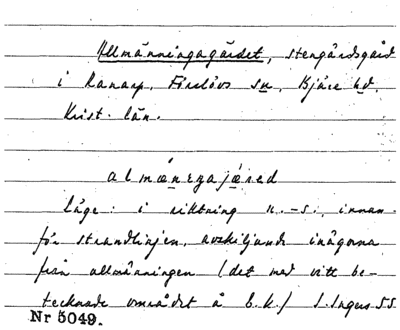 Allmänningagärdet, stengärdsgård
i Ranarp, Förslövs sn, Bjäre hd,
Krist. län.
almæneŋajæred
Läge: i riktning n.-s., innan-
för strandlinjen, avskiljande inägorna
från allmänningen (det med vitt be-
tecknade området å E.K./ S. Ingers SS
Nr 5049.